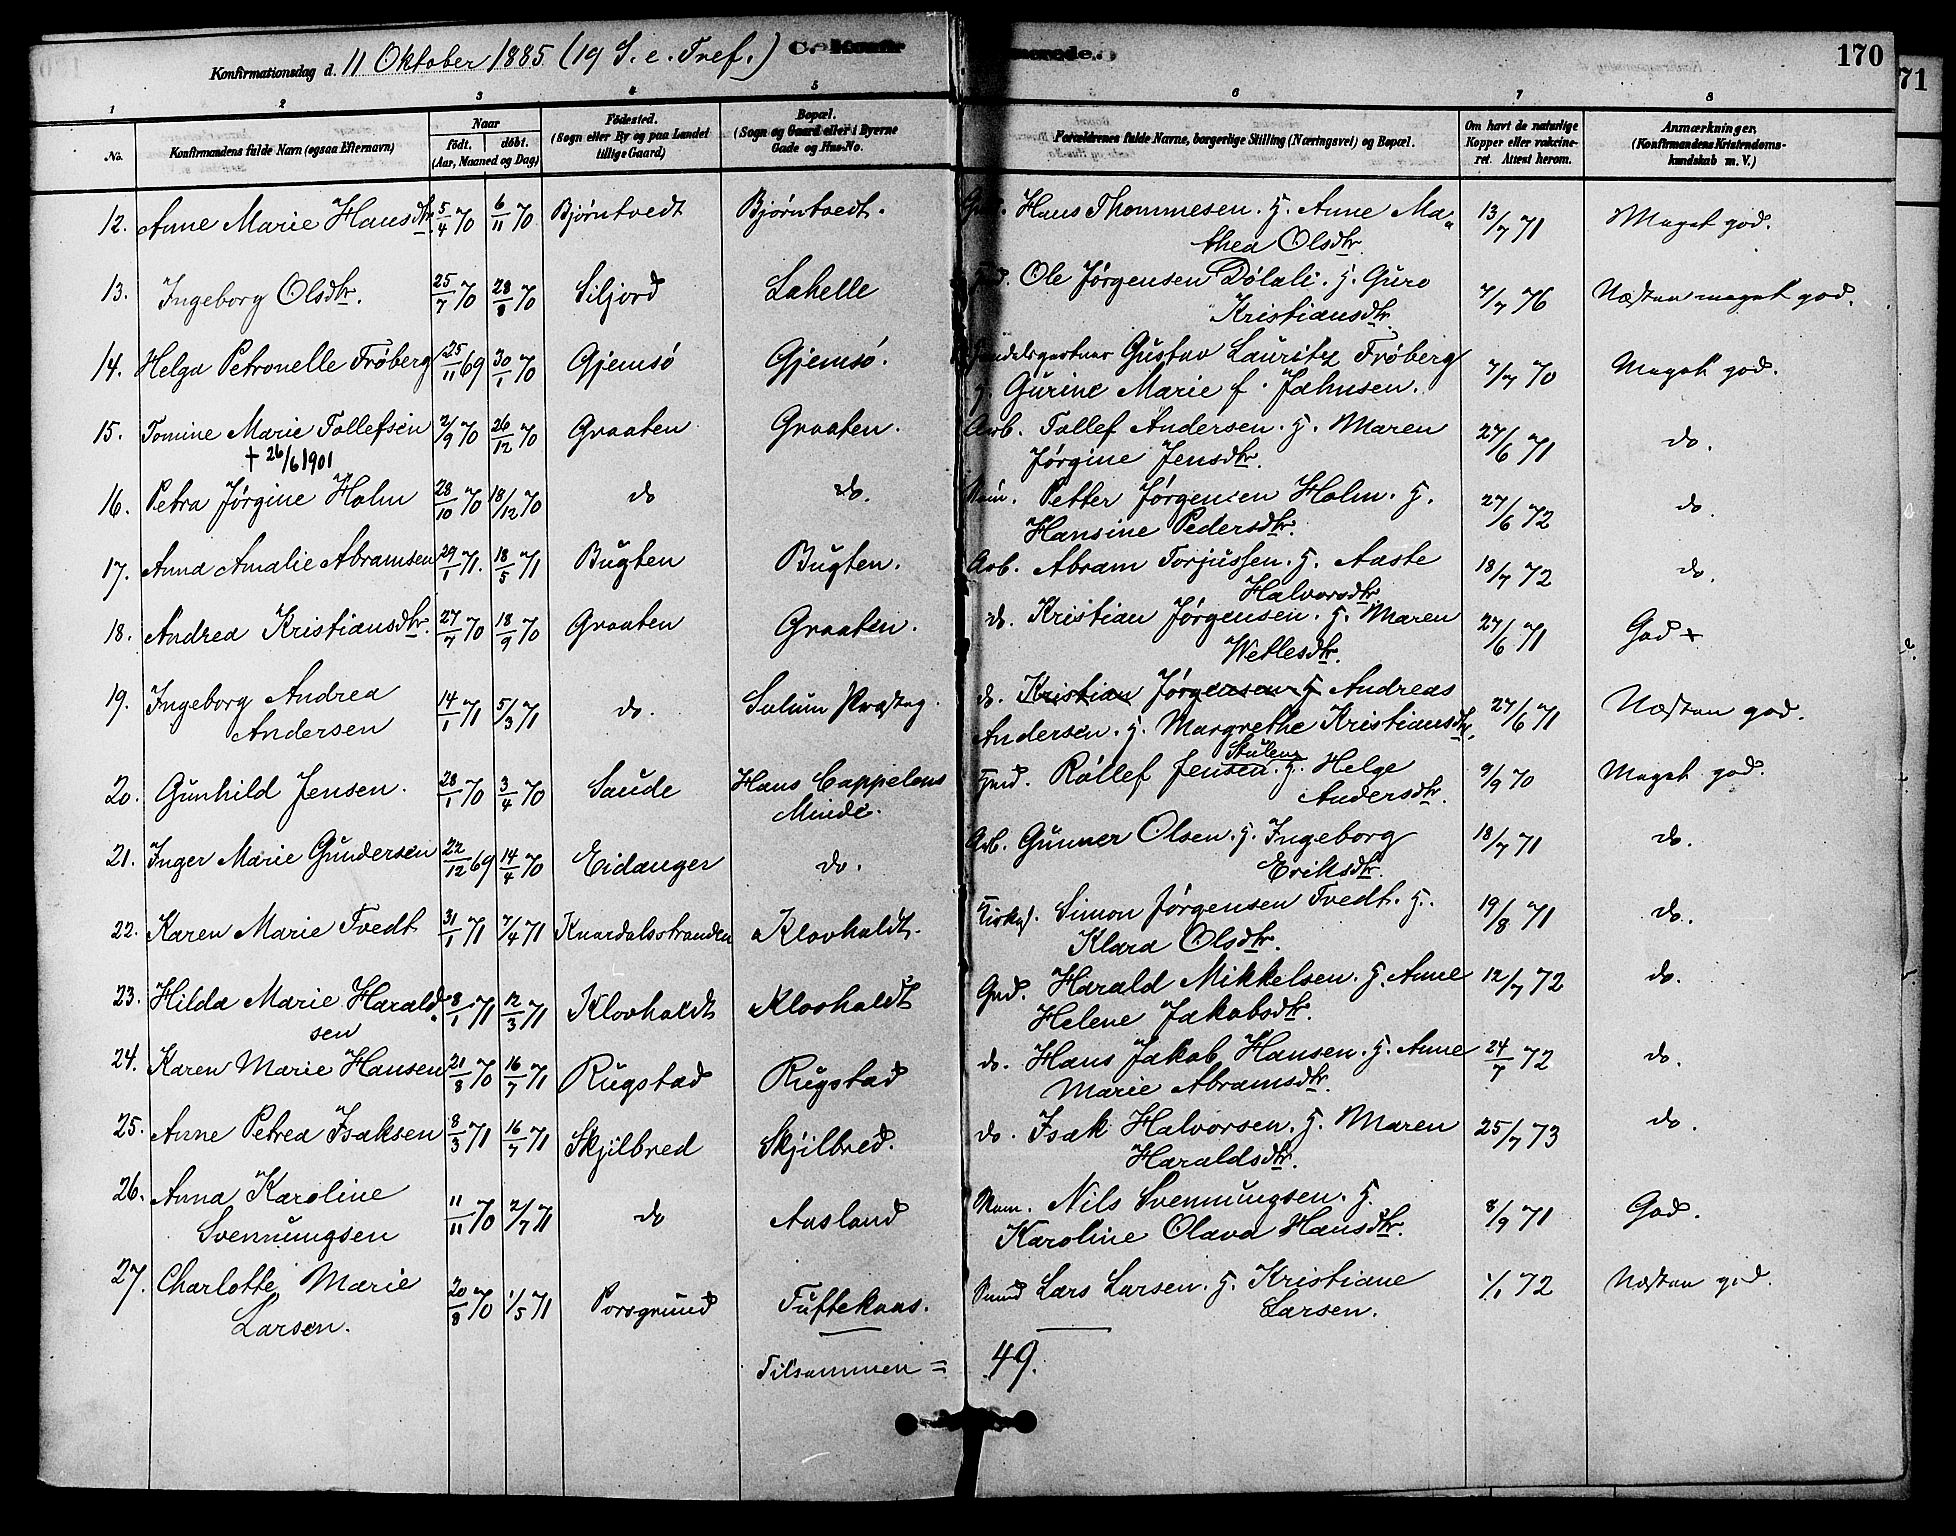 Konfirmationsdag d. 11 Oktober 1885 (19 S. e. Tref.)
170
71
1 2 3 4 5 6 7 8
No.
Konfirmandens fulde Navn (ogsaa Efternavn)
Naar
født. døbt.
(Aar, Maaned og Dag)
Fødested.
(Sogn eller By og paa Landet
tillige Gaard)
Bopæl.
(Sogn og Gaard eller i Byerne
Gade og Hus-No.
Forældrenes fulde Navne, borgerlige Stilling (Næringsvei) og Bopæl.
Om havt de naturlige
Kopper eller vakcine-
ret. Attest herom.
Anmærkninger.
(Konfirmandens Kristendoms-
kundskab m. V.)
12. Anne Marie Hansdtr. 5/4 70 6/11 70 Bjørntvedt Bjørntvedt. Hans Thommesen. H. Anne Ma- 13/7 71 Meget god.
thea Olsdtr.
13. Ingeborg Olsdtr. 25/7 70 28/8 70 Siljord Lahelle Ole Jørgensen Dølali. H. Guro 7/7 76 Næsten meget god.
Kristiansdtr.
14. Helga Petronelle Frøberg 25/11 69 30/1 70 Gjemsø Gjemsø. Handelsgartner Gustav Lauritz Frøberg 7/7 70 Meget god.
H. Gurine Marie f. Jahnsen.
15. Tomine Marie Tollefsen 2/9 70 26/12 70 Graaten Graaten. Arb. Tollef Andersen. H. Maren 27/6 71 do.
† 26/6 1901
Jørgine Jensdtr.
16. Petra Jørgine Holm 28/10 70 18/12 70 do do. Petter Jørgensen Holm. H. 27/6 72 do.
Hansine Pedersdtr.
17. Anna Amalie Abramsen 29/1 71. 18/5 71 Bugten Bugten. Arb. Abram Torjussen. H. Aaste 18/7 72 do.
Halvorsdtr.
18. Andrea Kristiansdtr. 27/7 70 18/9 70 Graaten Graaten. do. Kristian Jørgensen. H. Maren 27/6 71 God +
Wetlesdtr.
19. Ingeborg Andrea 14/1 71 5/3 71 do. Solum Præsteg. do. Kristian Jørgensen H Andreas 27/6 71 Næsten god.
Andersen
Andersen. H. Margrethe Kristiansdtr.
20. Gunhild Jensen. 28/1 70 3/4 70 Saude Hans Cappelens Gmd. Rollef Jensen. H. Helge 9/9 70 Meget god.
Minde.
Andersdtr.
21. Inger Marie Gundersen 22/12 69 14/4 70 Eidanger do. Arb. Gunner Olsen. H. Ingeborg 18/7 71 do.
Eriksdtr.
22. Karen Marie Tvedt 31/1 71 7/4 71 Knardalsstranden Klovholdt. Simon Jørgensen Tvedt. H. 19/8 71 do.
Klara Olsdtr.
23. Hilda Marie Harald- 8/1 71 12/3 71 Klovholdt Klovholdt Gmd. Harald Mikkelsen. H. Anne 12/7 72 do.
sen
Helene Jakobsdtr.
24. Karen Marie Hansen 21/8 70 16/7 71 Rugstad Rugstad do. Hans Jakob Hansen. H. Anne 24/7 72 do.
Marie Abramsdtr.
25. Anne Petrea Isaksen 8/3 71 16/7 71 Skjilbred Skjilbred. do. Isak Halvorsen. H. Maren 25/7 73 do.
Haraldsdtr.
26. Anna Karoline 11/11 70 2/7 71 do Aasland Nils Svennungsen. H. 8/9 71 God.
Svennungsen
Karoline Olava Hansdtr.
27. Charlotte Marie 20/8 70 1/5 71 Porsgrund Tuftekaas. Lars Larsen. H. Kristiane 1/1 72 Næsten god.
Larsen.
Larsen.
Tilsammen = 49.